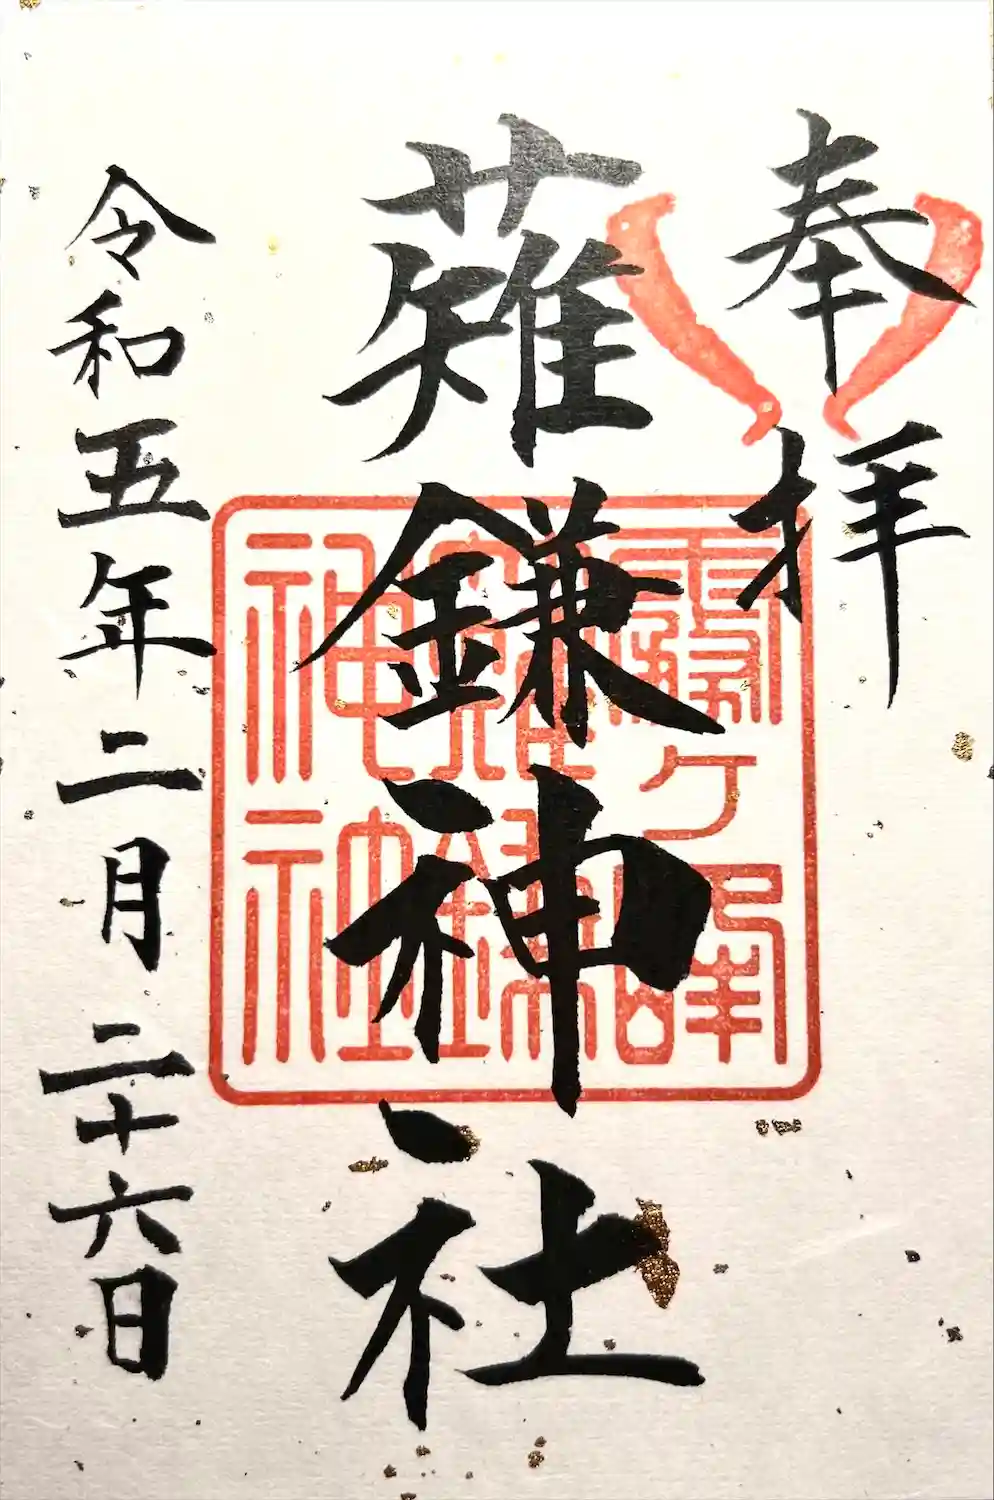 奉拝
薙鎌神社
令和五年二月二十六日
霧ヶ峰
薙鎌
神社